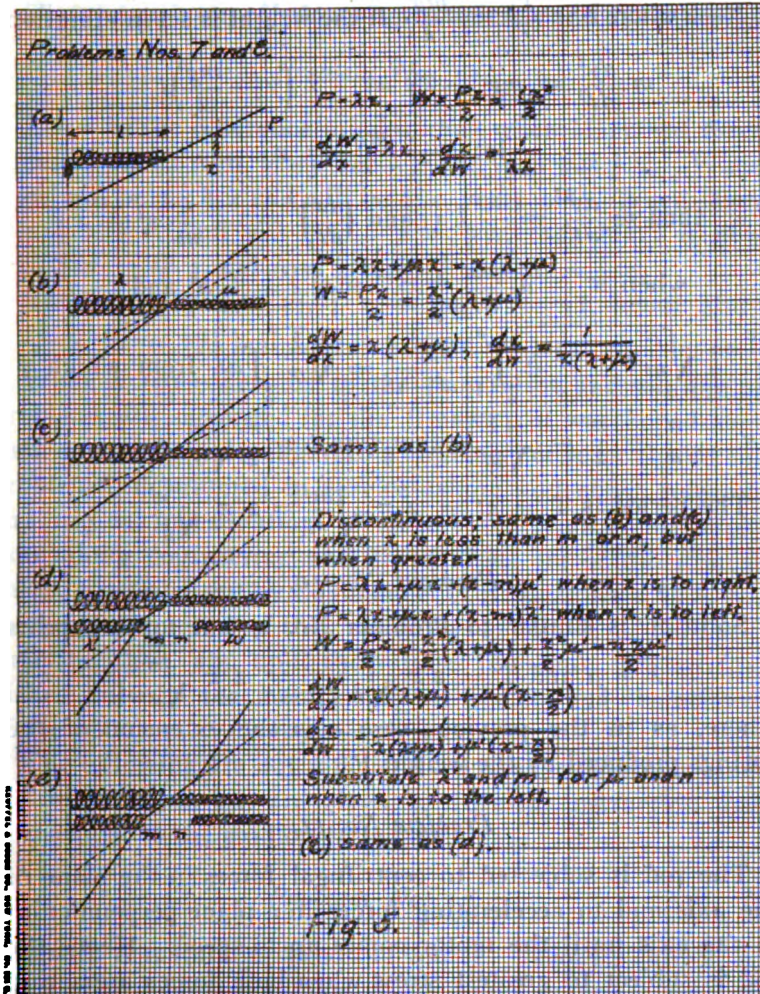 Problems Nos. 7 and 8.
(a)
l
P
x
P=λx, W=Px/2=λx²/2
dW/dx=λx, dx/dW=1/λx
(b)
λ
μ
P=λx+μx=x(λ+μ)
W=Px/2=x²/2(λ+μ)
dW/dx=x(λ+μ), dx/dW=1/x(λ+μ)
(c)
Same as (b)
(d)
Discontinuous; same as (b) and (c)
when x is less than m or n, but
when greater
P=λx+μx+(x-n)μ' when x is to right,
P=λx+μx+(x-m)λ' when x is to left.
λ' m n μ'
W=Px/2=x²/2(λ+μ)+x²/2μ'-nxμ'/2
dW/dx=x(λ+μ)+μ'(x-n/2)
dx/dW=1/x(λ+μ)+μ'(x-n/2)
(e)
m n
Substitute λ' and m for μ' and n
when x is to the left.
(e) same as (d).
Fig 5.